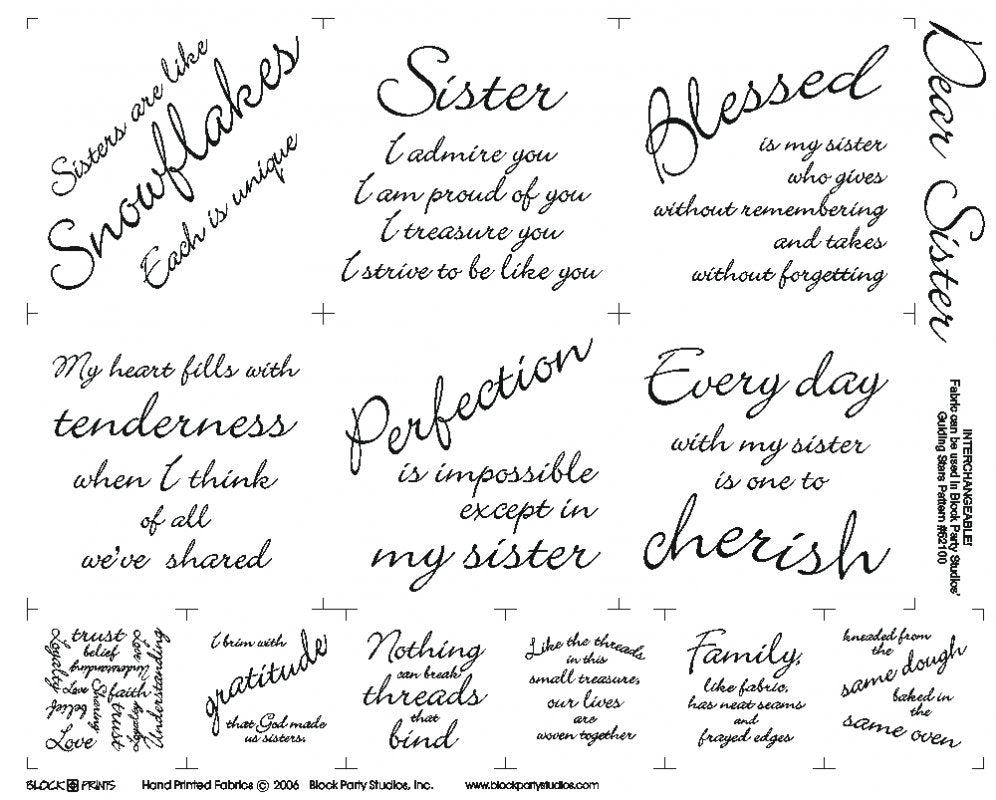 Sisters are like
Snowflakes
Each is unique
Sister
I admire you
I am proud of you
I treasure you
I strive to be like you
Blessed
is my sister
who gives
without remembering
and takes
without forgetting
Dear Sister
My heart fills with
tenderness
when I think
of all
we've shared
Perfection
is impossible
except in
my sister
Every day
with my sister
is one to
cherish
INTERCHANGEABLE!
Fabric can be used in Block Party Studios'
Guiding Stars Pattern #62100
trust
belief
Loyalty
Love
Understanding
Understanding
Love
Sharing
faith
belief
trust
Loyalty
Love
I brim with
gratitude
that God made
us sisters.
Nothing
can break
threads
that
bind
Like the threads
in this
small treasure,
our lives
are
woven together
Family,
like fabric,
has neat seams
and
frayed edges
kneaded from
the
same dough
baked in
the
same oven
BLOCK PRINTS Hand Printed Fabrics © 2006 Block Party Studios, Inc. www.blockpartystudios.com